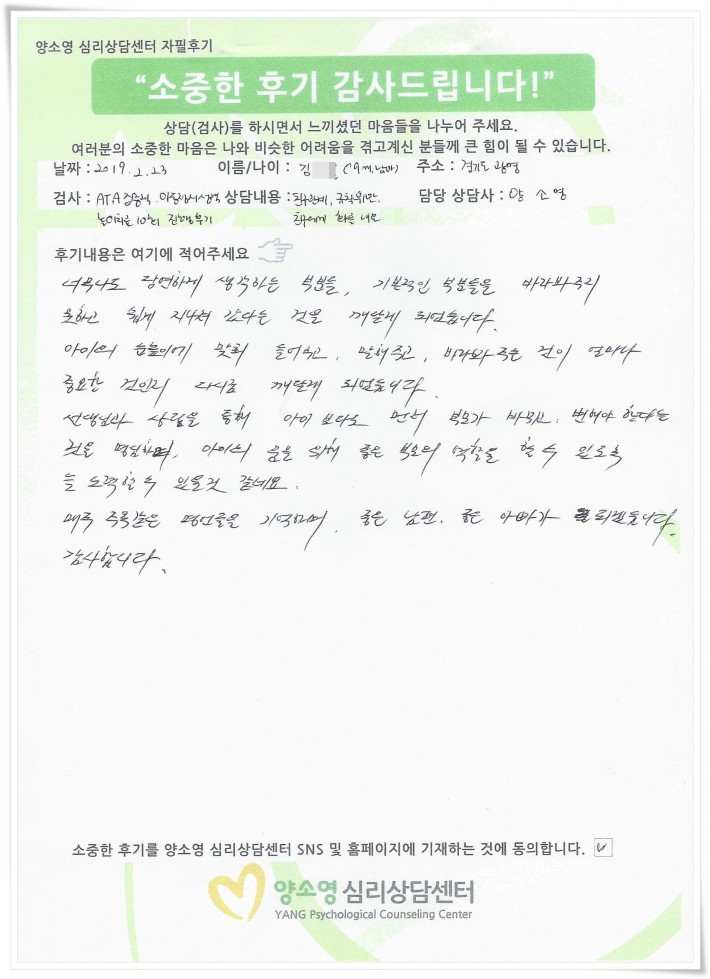 양소영 심리상담센터 자필후기
“소중한 후기 감사드립니다!”
상담(검사)를 하시면서 느끼셨던 마음들을 나누어 주세요.
여러분의 소중한 마음은 나와 비슷한 어려움을 겪고계신 분들께 큰 힘이 될 수 있습니다.
날짜 : 2019. 2. 23 이름/나이 : 김 (9세, 남아) 주소 : 경기도 광명
검사 : ATA 상담내용 : 담당 상담사 : 양 소 영
놀이치료 10회
후기내용은 여기에 적어주세요
너무나도 당연하게 생각하는 부분들, 기본적인 부분들을 바라봐주지
못하고 쉽게 지나쳐 갔다는 것을 깨닫게 되었습니다.
아이의 눈높이에 맞춰 들어주고, 말해주고, 바라봐 주는 것이 얼마나
중요한 것인지 다시금 깨닫게 되었습니다.
선생님과 상담을 통해 아이 보다도 먼저 부모가 바뀌고, 변해야 한다는
것을 명심하며, 아이의 꿈을 위해 좋은 부모의 역할을 할 수 있도록
늘 노력할 수 있을것 같네요.
매주 주옥같은 명언들을 기억하며, 좋은 남편, 좋은 아빠가 되겠습니다.
감사합니다.
소중한 후기를 양소영 심리상담센터 SNS 및 홈페이지에 기재하는 것에 동의합니다.
양소영 심리상담센터
YANG Psychological Counseling Center